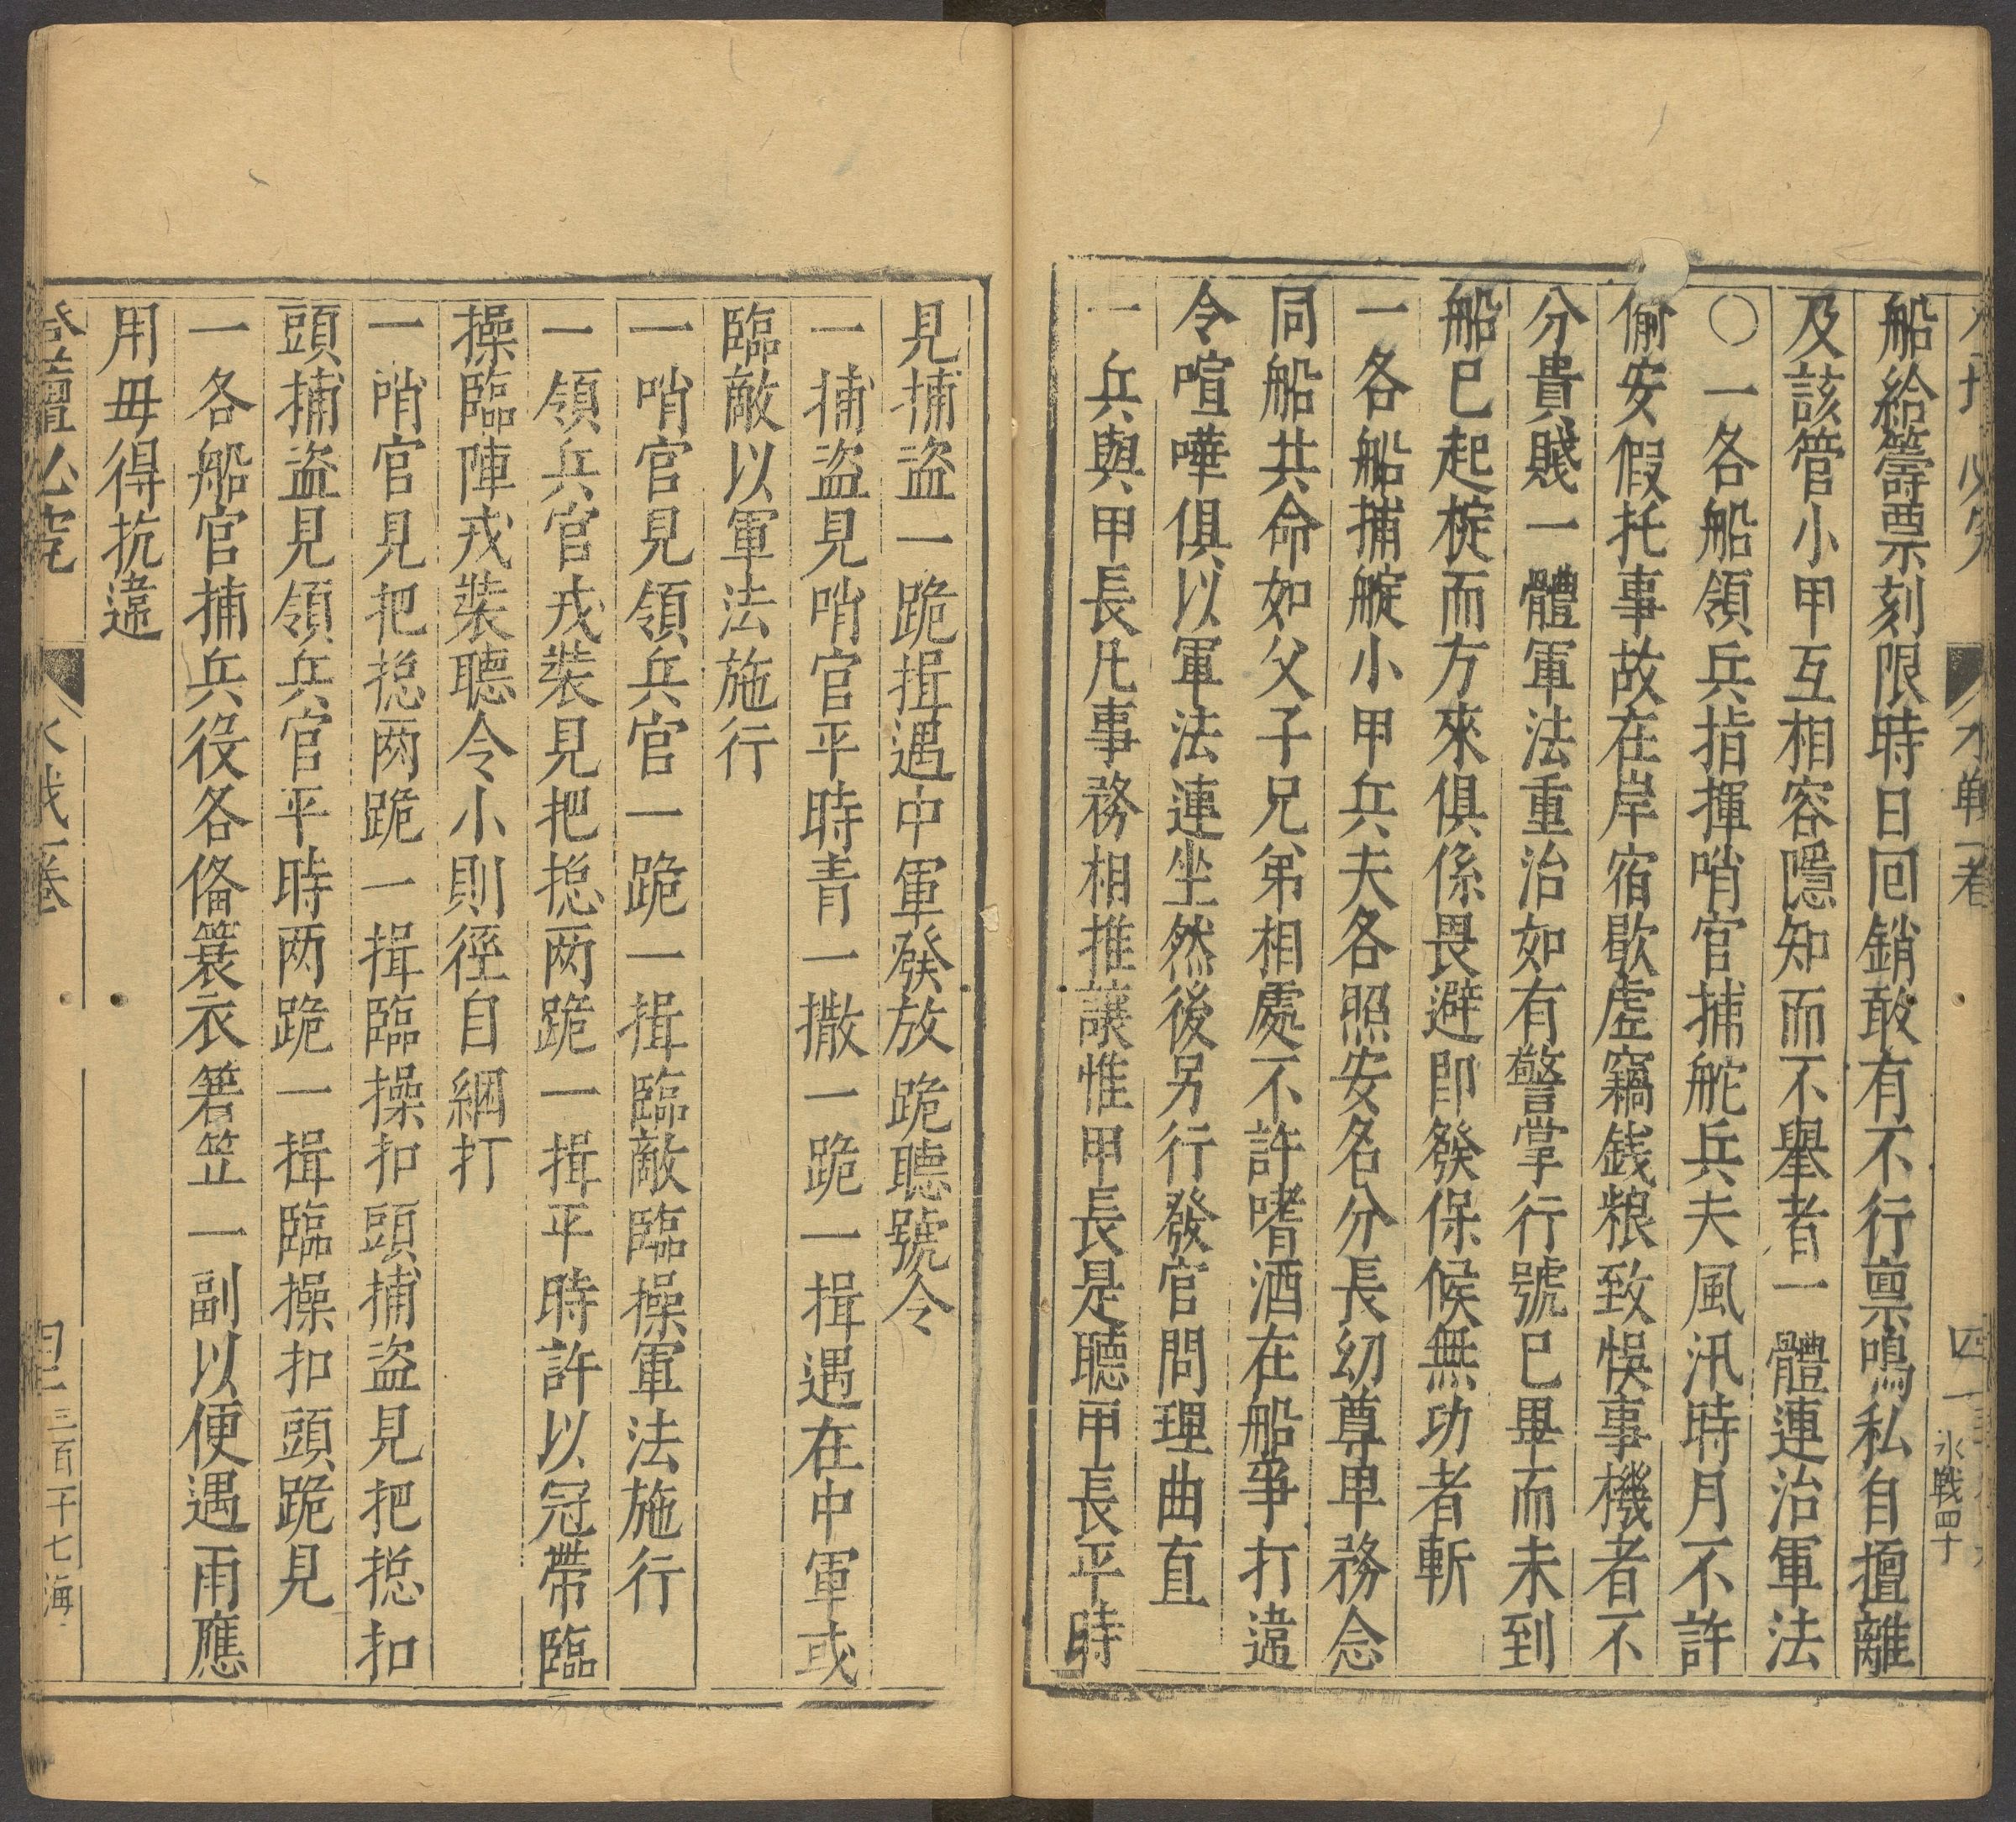 水戰四十
船給籌票刻限時日回銷敢有不行禀鳴私自擅離
及該管小甲互相容隱知而不舉者一體連治軍法
○一各船領兵指揮哨官捕舵兵夫風汛時月不許
偷安假托事故在岸宿歇虛竊錢粮致悞事機者不
分貴賤一體軍法重治如有警掌行號已畢而未到
船已起椗而方來俱係畏避即發保候無功者斬
一各船捕艇小甲兵夫各照安名分長幼尊卑務念
同船共命如父子兄弟相處不許嗜酒在船爭打違
令喧嘩俱以軍法連坐然後另行發官問理曲直
一兵與甲長凡事務相推讓惟甲長是聽甲長平時
見捕盜一跪揖遇中軍發放跪聽號令
一捕盜見哨官平時青一撒一跪一揖遇在中軍或
臨敵以軍法施行
一哨官見領兵官一跪一揖臨敵臨操軍法施行
一領兵官戎裝見把捴两跪一揖平時許以冠帶臨
操臨陣戎裝聽令小則徑自綑打
一哨官見把捴两跪一揖臨操扣頭捕盜見把捴扣
頭捕盜見領兵官平時两跪一揖臨操扣頭跪見
一各船官捕兵役各俻簑衣箬笠一副以便遇雨應
用毋得抗違
登壇必究
水戰一卷
三百一千七海